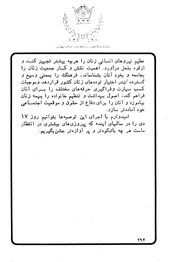 عظیم نیروهای انسانی زنان را هرچه بیشتر تجهیز کند، و
ازقوه بفعل درآورد. اهمیت نقش و کار جمعیت زنان را
بجامعه و بخود آنان بشناساند، فرهنگ را بمعنی وسیع و
گسترده آن در اختیار توده‌های زنان کشور قراردهد و موجبات
کسب مهارت و فراگیری حرفه‌های مختلف را برای آنان
فراهم کند، اصول بهداشت و تنظیم خانواده را بهمه زنان
بیاموزد و آنان را برای دفاع از حقوق و موقعیت اجتماعی
خود آماده‌تر سازد.
امیدوارم با اجرای این توصیه‌ها بتوانیم روز ۱۷
دی را در سالهای آینده که پیروزی‌های بیشتری در انتظار
ماست هر چه باشکوه‌تر و پر آوازه‌تر جشن بگیریم.